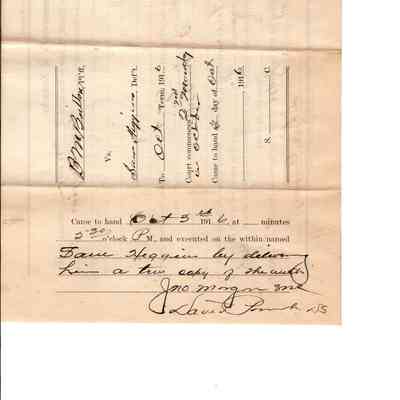 B M Bullon, Pl'ff,
Vs.
Dave Higgins Def't.
To Oct Term, 1916
Court commences 2nd Monday
in October
Came to hand day of Oct
1916
S. C.
Came to hand Oct 3rd 1916, at minutes
5-30 o'clock P M., and executed on the within named
Dave Higgins by deliver
him a true copy of the with
Jno Morgan
David D/S